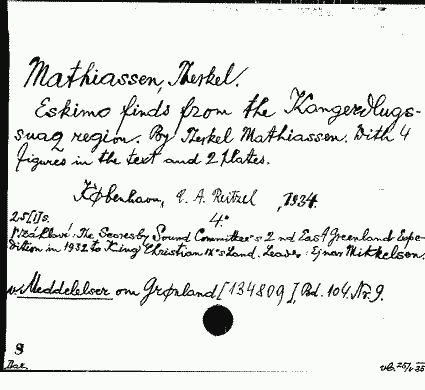 Mathiassen, Therkel.
Eskimo finds from the Kangerdlugs-
suaq region. By Therkel Mathiassen. With 4
figures in the text and 2 Plates.
København, C. A. Reitzel, 1934.
25[1]s. 4°
: The Scoresby Sound Committee's 2nd East Greenland Expe-
dition in 1932 to King Christian IX's Land. Leader: Ejnar Mikkelsen.
Meddelelser om Grønland [134809], Bd. 104. Nr. 9.